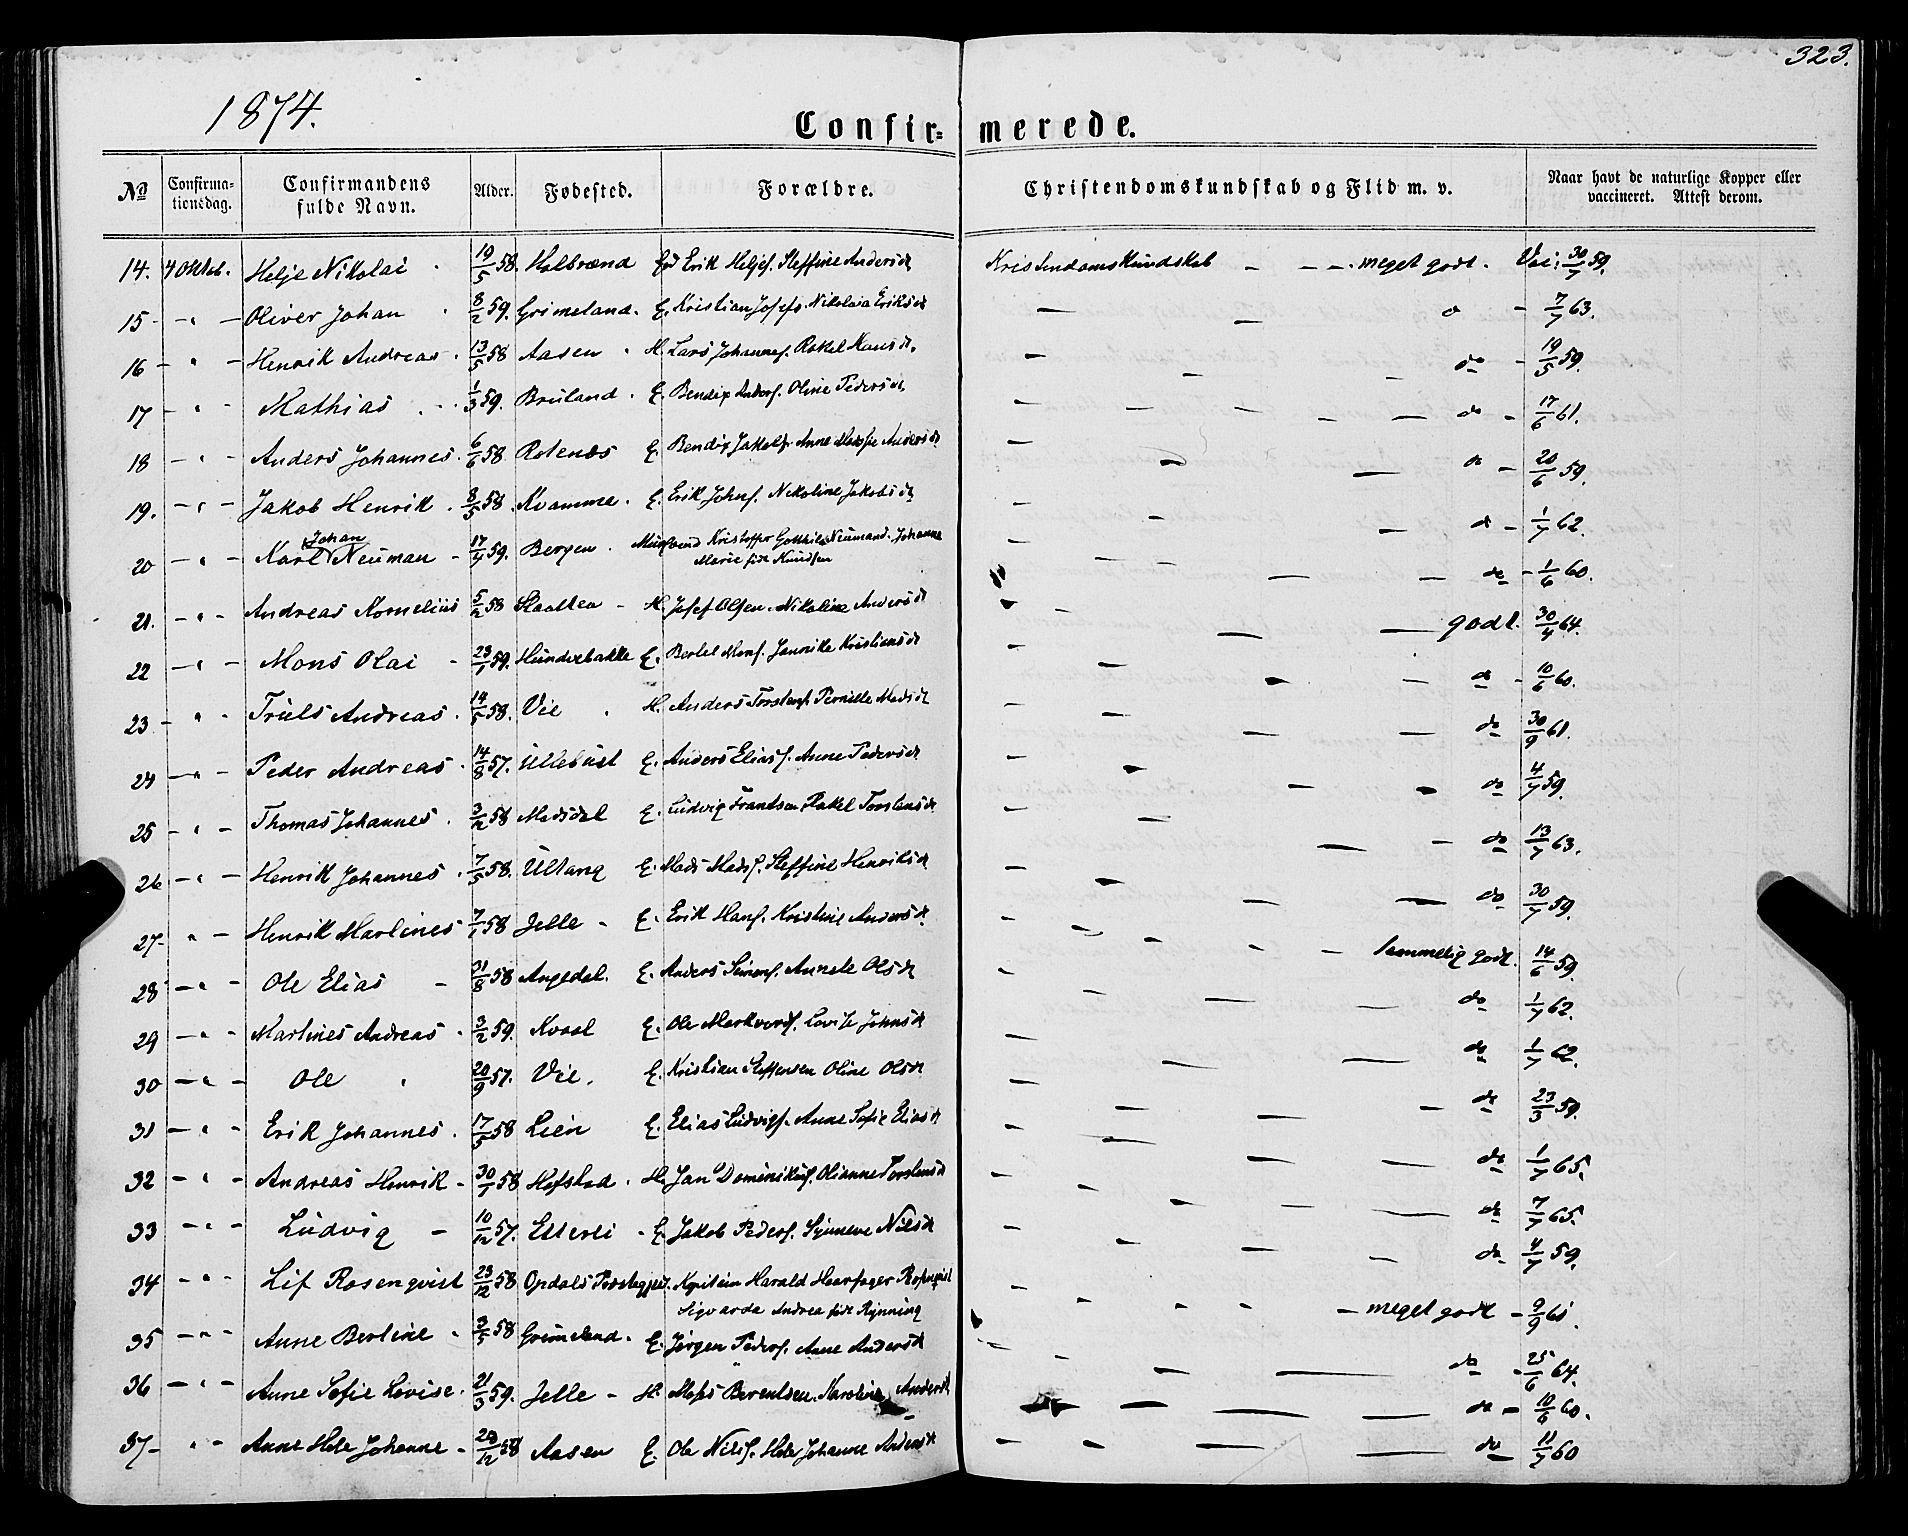 323.
1874.
Confir= merede.
No Confirma-tionsdag. Confirmandens fulde Navn. Alder. Fødested. Forældre. Christendomskundskab og Flid m. v. Naar havt de naturlige Kopper eller vaccineret. Attest derom.
14. 4 Oktob. Helje Nikolai 19/5 58. Halbrænd Erik Heljes. Steffine Andersdt Kristendomskundskab - - - meget godt. Vac. 30/7 59.
15 - " - Oliver Johan 8/2 59. Grimeland. E. Kristian Josefs. Nikolaia Eriksdt - - do - 7/7 63.
16 - " - Henrik Andreas. 13/5 58 Aasen H. Lars Johannes. Rakel Hansdt. - - - do - 19/5 59.
17 - " - Mathias 1/3 59. Bruland. E. Bendix Anders. Oline Pedersdt - - - - - do - 17/6 61.
18 - " - Anders Johannes. 6/6 58 Rotenæs E. Bendix Jakobs. Anne Andersdt - - - do - 20/6 59.
19. - " - Jakob Henrik. 8/5 58. Kvamme. E. Erik Johns. Nikoline Jakobsdt - - - do - 1/7 62.
20 - " - Karl Johan Neuman - 17/4 59. Bergen. Kristoffer Neumand. Johanne
Marie født Knudsen - - - - do - 1/6 60.
21. - " - Andreas Kornelius 5/2 58 Slaatten - H. Josef Olsen. Nikoline Andersdt - - - - godt. 30/4 64.
22 - " - Mons Olai - 23/1 59. Hundvebakke E. Bertel Mons. Jannike Kristiansdt - - - - do - 10/6 60.
23 - " - Truls Andreas. 14/5 58. Vie. H. Anders Torstens. Pernille Madsdt - - - - do 30/9 61.
24 - " - Peder Andreas. 14/8 57. Ullebust E. Anders Elias. Anne Pedersdt - - - - do 4/7 59.
25 - " - Thomas Johannes. 3/12 58 Madsdal E. Ludvig Frantsen Rakel Torstensdt - - - - do 13/7 63.
26 - " - Henrik Johannes. 7/5 58. Ultang E. Mads Mads. Steffine Henriksdt - - - - do 30/7 59.
27 - " - Henrik Martines 7/1 58 Jelle - E. Erik Hans. Kristine Andersdt. - - - - - temmelig godt. 14/6 59.
28 - " - Ole Elias - 31/8 58 Angedal. E. Anders Annete Olsdt - - - - do 1/7 62.
29 - " - Martines Andreas. 3/2 59. Kvaal E. Ole Markvards. Lovise Johnsdt - - - do 1/7 62.
30 - " - Ole 20/9 57. Vie. E. Kristian Steffensen Oline Olsdt - - - - do 23/3 59.
31 - " - Erik Johannes. 17/5 58 Lien E. Elias Ludvigs. Anne Sofie Eliasdt - - - - do 1/7 65.
32 - " - Andreas Henrik - 30/1 58 Hafstad. H. Jan Dominikus. Olianne Torstensdt - - - - - do 7/7 65.
33 - " - Ludvig - 10/12 57. Esterli - E. Jakob Peders. Synneve Nilsdt - - - - do 4/7 59.
34 - " - Lif Rosenqvist 23/12 58 Opdals Præstegjeld. Kaptein Harald Haarfager Rosenqvist
Sigvarda Andrea født Rynning - - - - - meget godt - 9/9 61.
35 - " - Anne Bertine - 3/5 58 Grimeland. E. Jørgen Peders. Anne Andersdt - - do - 25/6 64.
36 - " - Anne Sofie Lovise. 21/3 59. Jelle - H. Moses Berentsen. Karoline Andersdt - - - - do - 10/6 60.
37 - " - Anne Hele Johanne - 28/12 58 Aasen E. Ole Nils. Hele Johanne Andersdt - - - - do 11/7 60